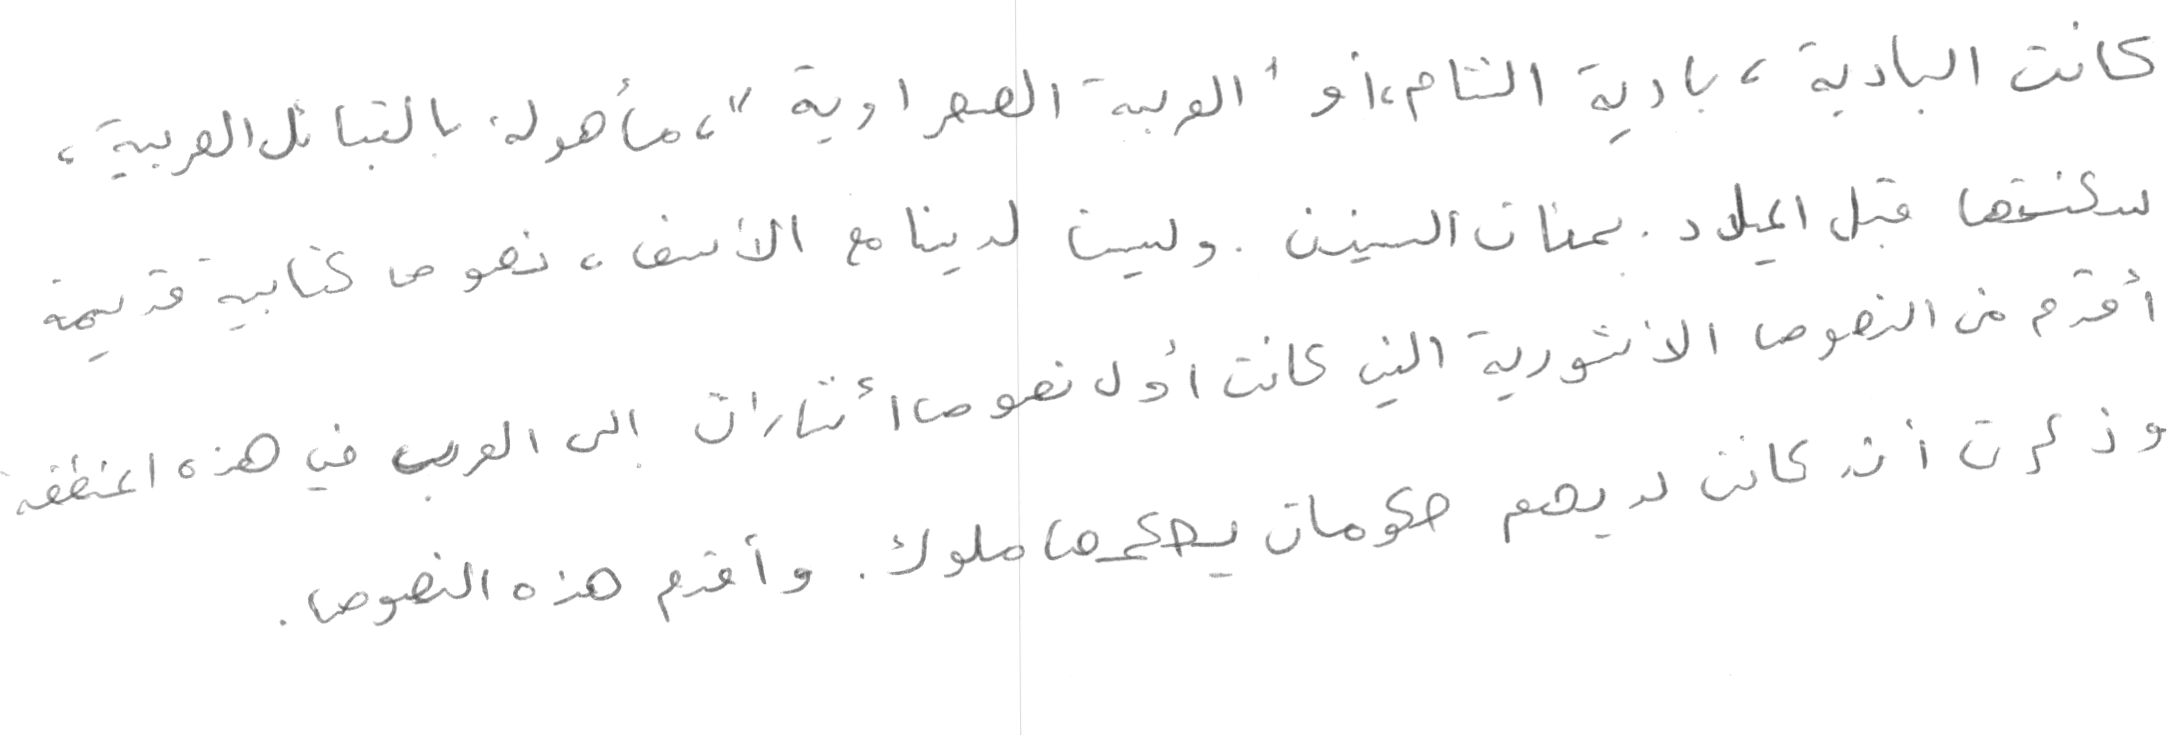 كانت البادية، بادية الشام، أو "العربية الصحراوية"، مأهولة بالقبائل العربية،
سكنتها قبل الميلاد. بمئات السنين. وليست لدينا مع الأسف، نصوص كتابية قديمة
أقدم من النصوص الأشورية التي كانت أول نصوص أشارات إلى العرب في هذه المنطقة
وذكرت أنه كانت لديهم حكومات يحكمها ملوك. وأقدم هذه النصوص.